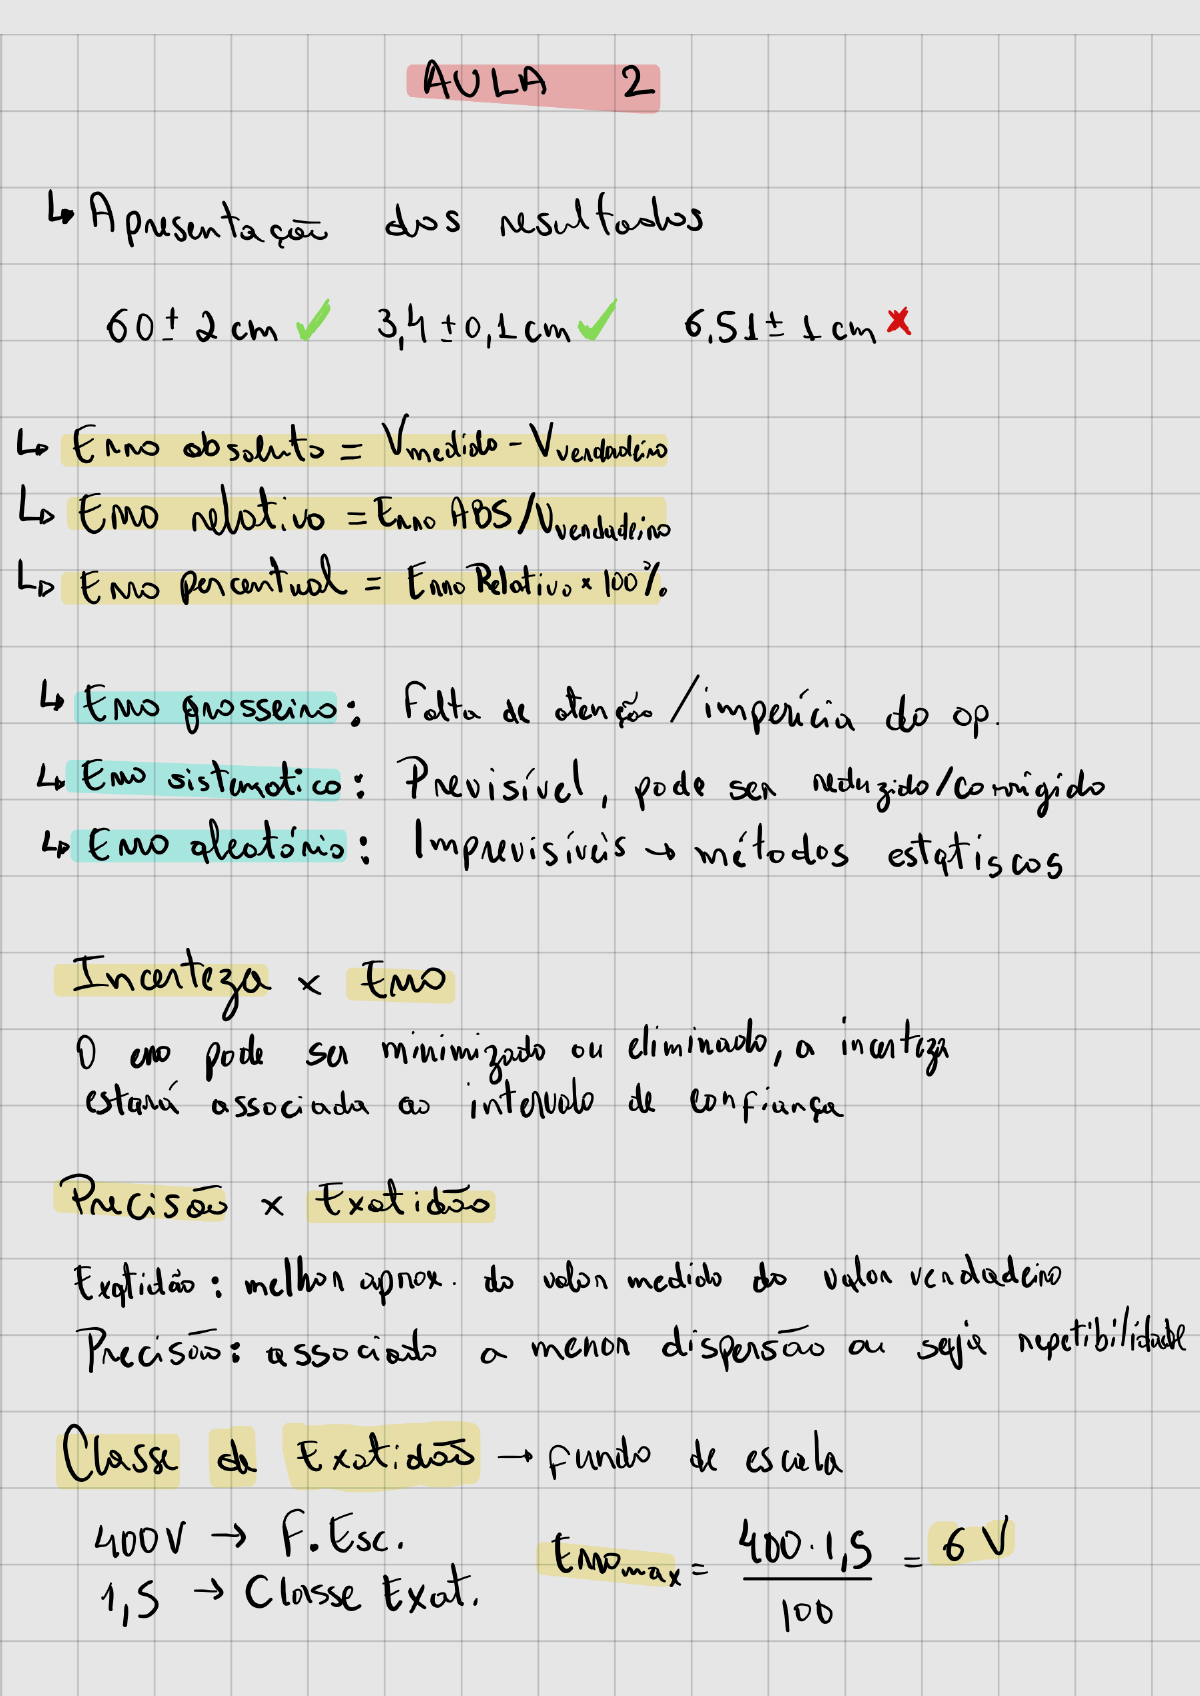 AULA 2
↳ Apresentação dos resultados
60 ± 2 cm ✓ 3,4 ± 0,1 cm ✓ 6,51 ± 1 cm ✗
↳ Erro absoluto = Vmedido - Vverdadeiro
↳ Erro relativo = Erro ABS/Vverdadeiro
↳ Erro percentual = Erro Relativo × 100%
↳ Erro grosseiro: Falta de atenção/imperícia do op.
↳ Erro sistematico: Previsível, pode ser reduzido/corrigido
↳ Erro aleatório: Imprevisíveis → métodos estatiscos
Incerteza × Erro
O erro pode ser minimizado ou eliminado, a incerteza
estará associada ao intervalo de confiança
Precisão × Exatidão
Exatidão: melhor aprox. do valor medido do valor verdadeiro
Precisão: associado a menor dispersão ou seja repetibilidade
Classe de Exatidão → fundo de escala
400V → F. Esc.
1,5 → Classe Exat.
Erro max = 400 · 1,5 / 100 = 6 V